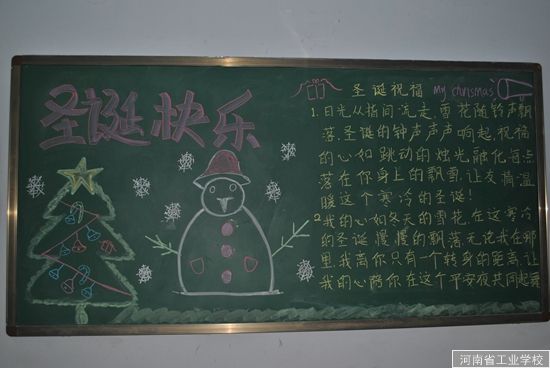 圣诞快乐
圣诞祝福 my chrismas
1.日光从指间流走,雪花随铃声飘
落.圣诞的钟声声声响起.祝福
的心如跳动的烛光融化每点
落在你身上的飘雪.让友情温
暖这个寒冷的圣诞!
2.我的心如冬天的雪花.在这寒冷
的圣诞慢慢的飘落.无论我在哪
里.我离你只有一个转身的距离.让
我的心陪你在这个平安夜共同起舞
河南省工业学校